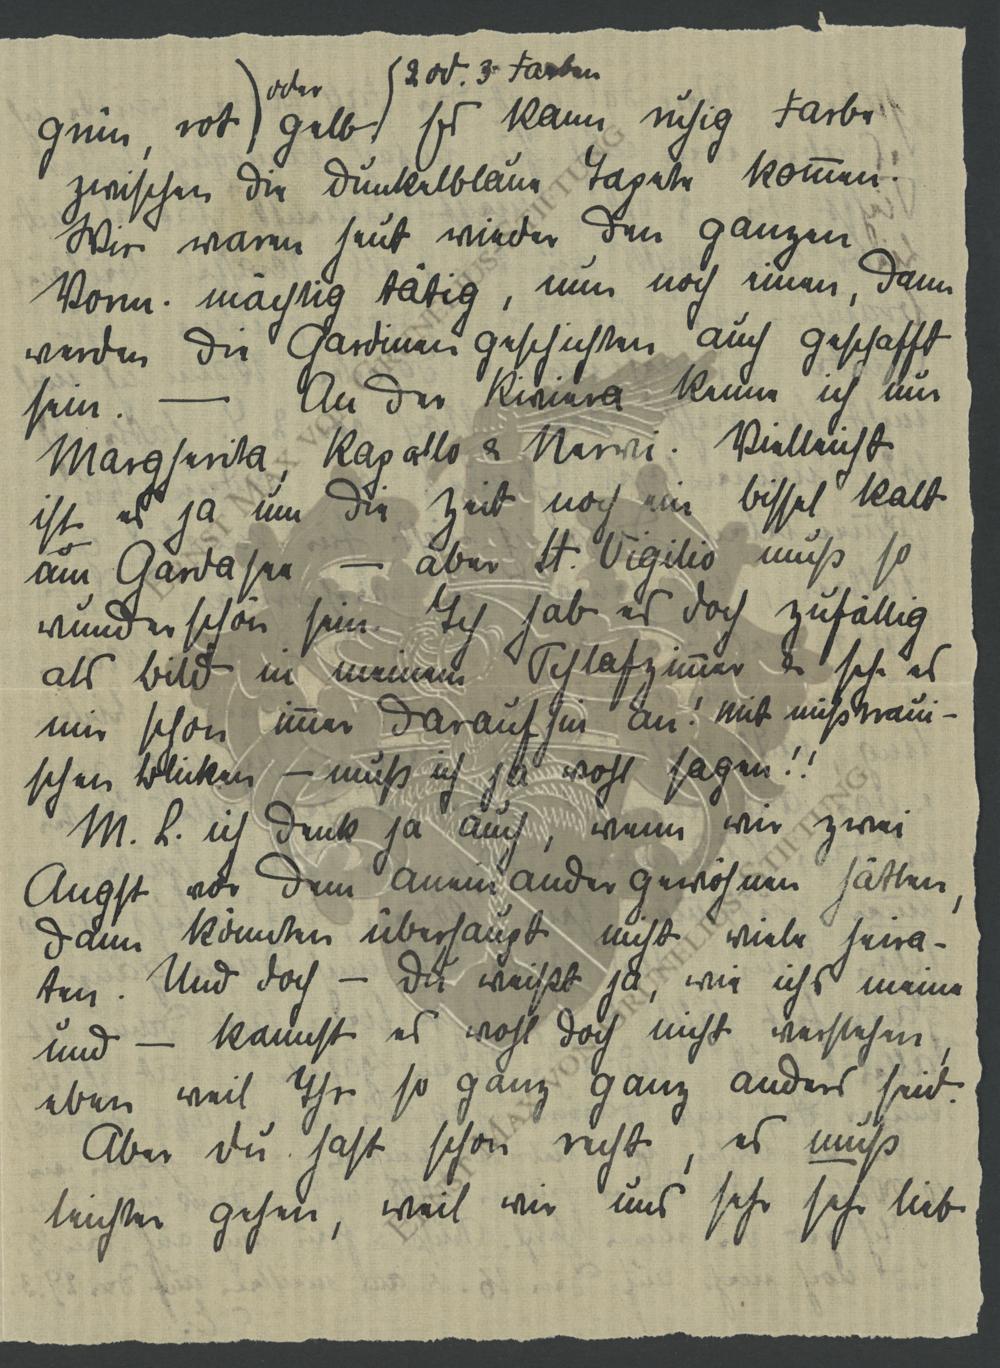 oder 2 od. 3 Farben
grün, rot) gelb) Es kann ruhig Farbe
zwischen die dunkelblaue Tapete kom̅en.
Wir waren heut wieder den ganzen
Vorm. mächtig tätig, nun noch einen, dann
werden die Gardinengeschichten auch geschafft
sein. — An der Riviera kenne ich nur
Margherita, Rapallo & Nervi. Vielleicht
ist es ja um die Zeit noch ein bissel kalt
am Gardasee — aber St. Vigilio muß so
wunderschön sein. Ich hab es doch zufällig
als Bild in meinem Schlafzim̅er & seh es
mir schon im̅er daraufhin an! mit mißtraui-
schen Blicken — muß ich ja wohl sagen!!
M. L. ich denk ja auch, wenn wir zwei
Angst vor dem aneinandergewöhnen hätten,
dann könnten überhaupt nicht viele heira-
ten. Und doch — du weißt ja, wie ichs meine
und — kannst es wohl doch nicht verstehen,
eben weil Ihr so ganz ganz anders seid.
Aber du hast schon recht, es muß
leichter gehen, weil wir uns sehr sehr lieb
ERNST MAX VON GRIENLIUS STIFTUNG